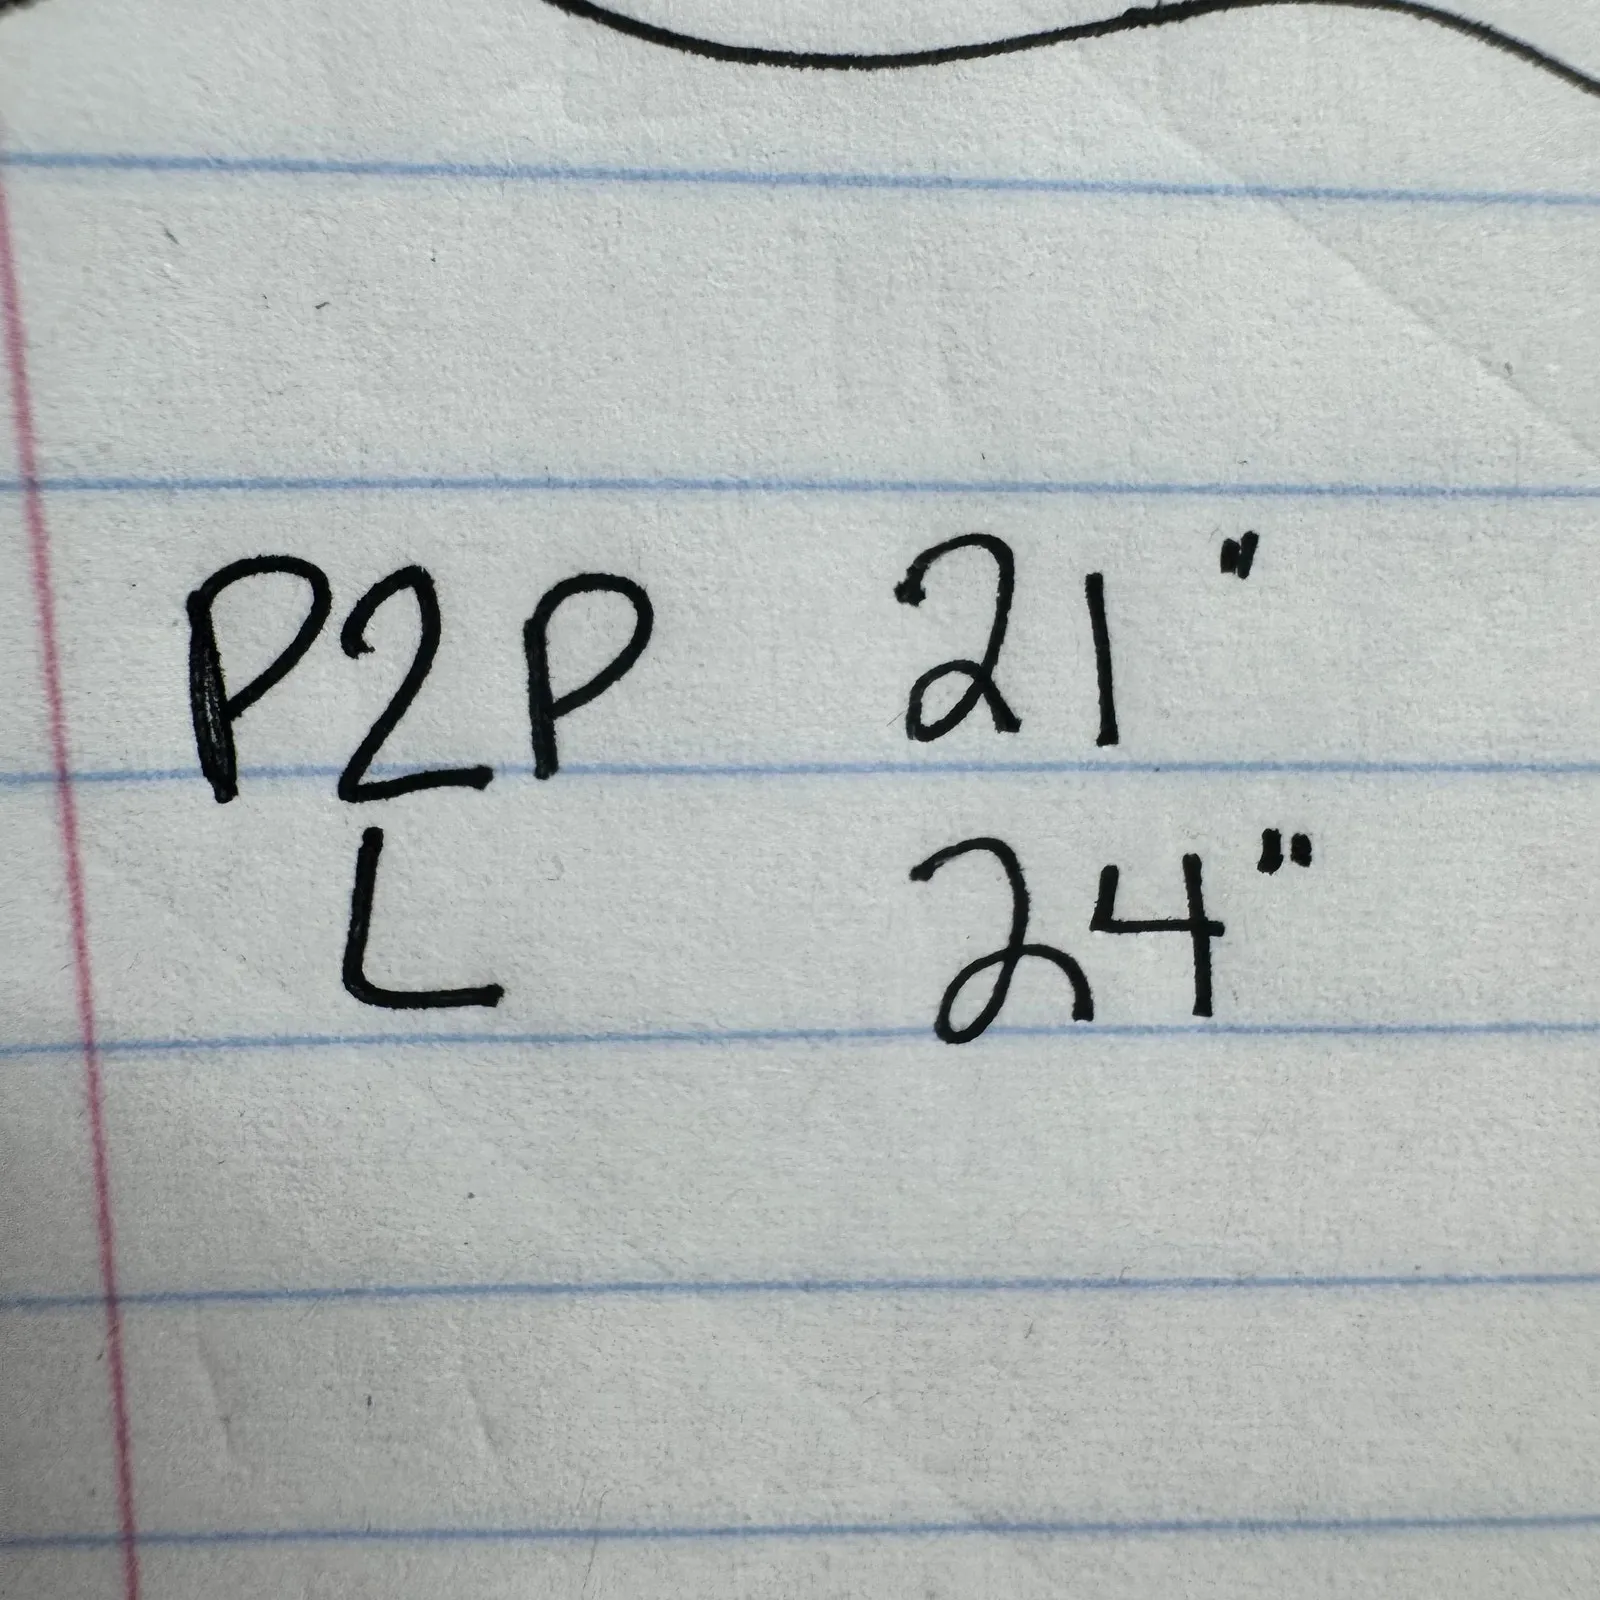 P2P 21"
L 24"